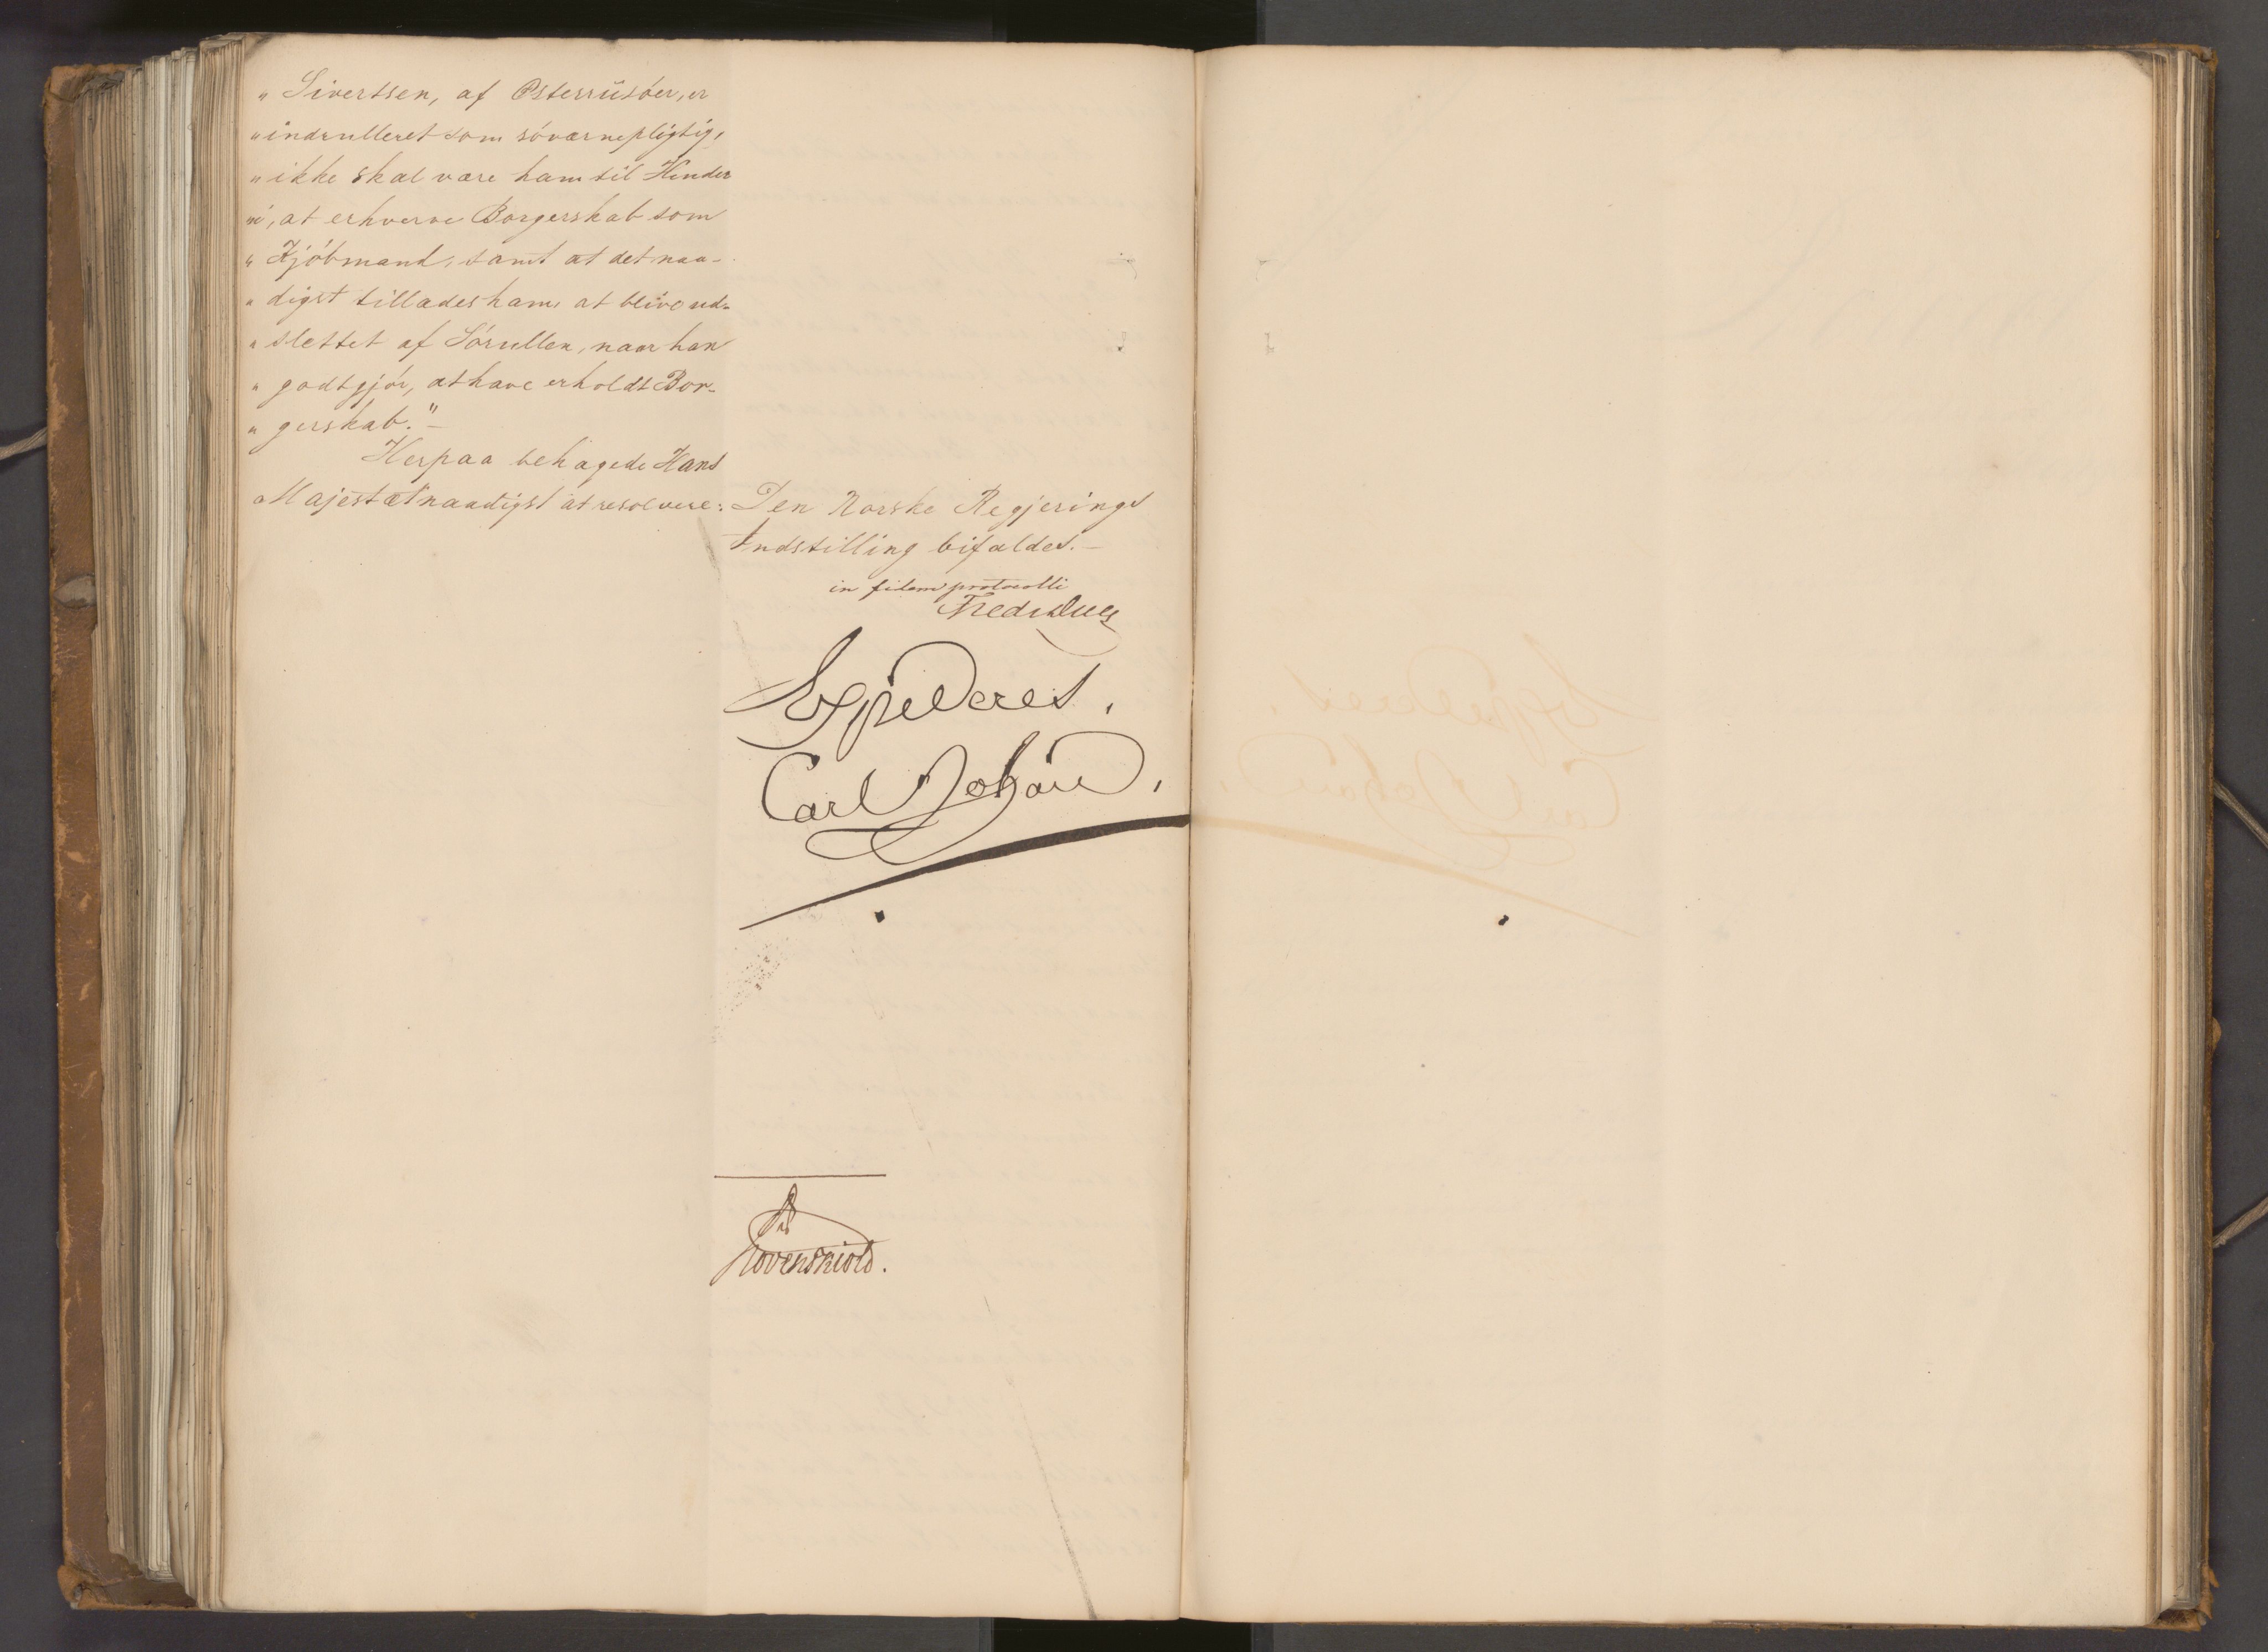 „ Sivertsen, af Østerriisöer, er
„ indrulleret som söværnepligtig,
„ ikke skal være ham til Hinder
„ i, at erhverve Borgerskab som
„ Kjöbmand, samt at det naa-
„ digst tillades ham, at blive ud-
„ slettet af Sörullen, naar han
„ godtgjör, at have erholdt Bor-
„ gerskab."—
Herpaa behagede Hans
Majestæt naadigst at resolvere:
Den Norske Regjerings
Indstilling bifaldes.—
in fidem protocolli
Fredr Due
Expederes.
Carl Johan.
Løvenskiold.